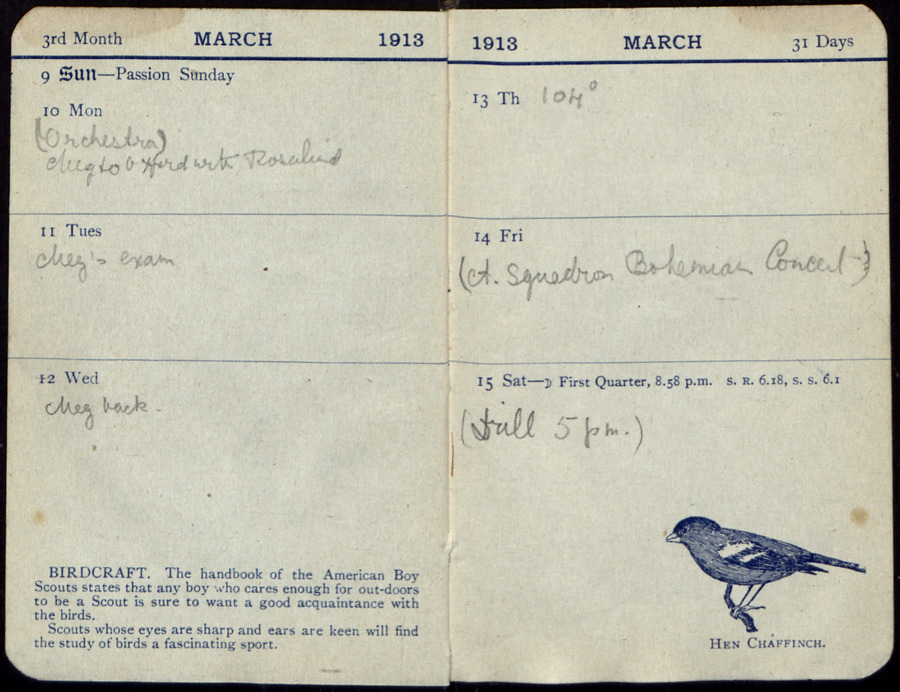 3rd Month MARCH 1913
9 Sun—Passion Sunday
10 Mon
(Orchestra)
Meg to Oxford with Rosalind
11 Tues
Meg's exam
12 Wed
Meg back.
BIRDCRAFT. The handbook of the American Boy
Scouts states that any boy who cares enough for out-doors
to be a Scout is sure to want a good acquaintance with
the birds.
Scouts whose eyes are sharp and ears are keen will find
the study of birds a fascinating sport.
1913 MARCH 31 Days
13 Th 104°
14 Fri
(A. Squadron Bohemian Concert)
15 Sat—☽ First Quarter, 8.58 p.m. S. R. 6.18, S. S. 6.1
(Drill 5 pm.)
HEN CHAFFINCH.